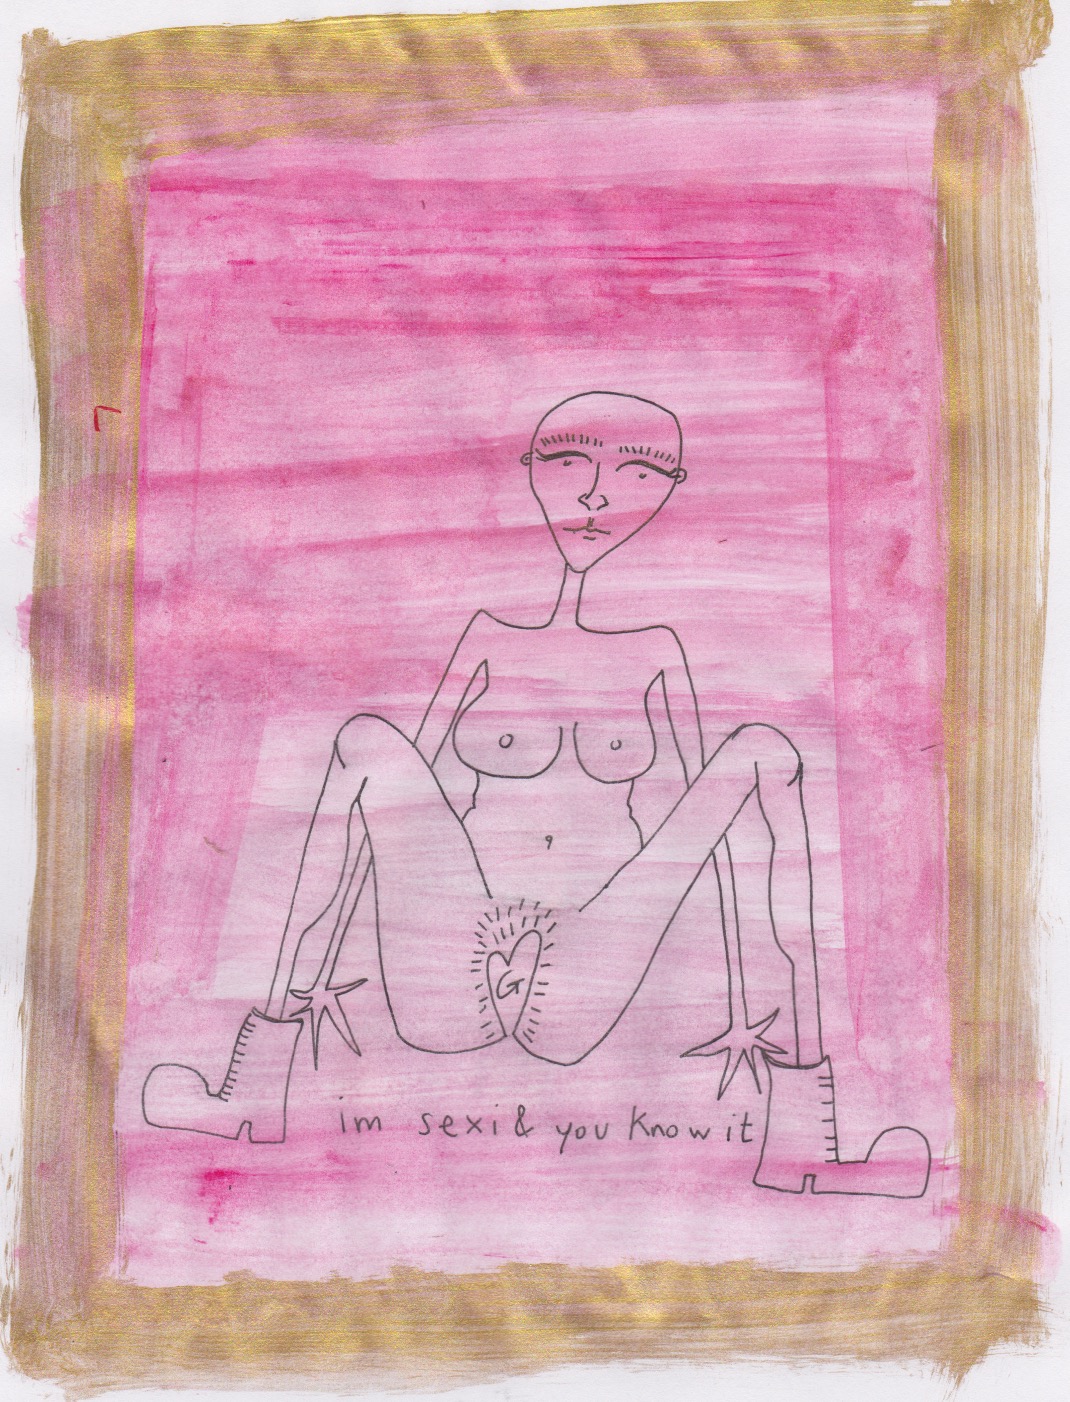 G
im sexi & you know it